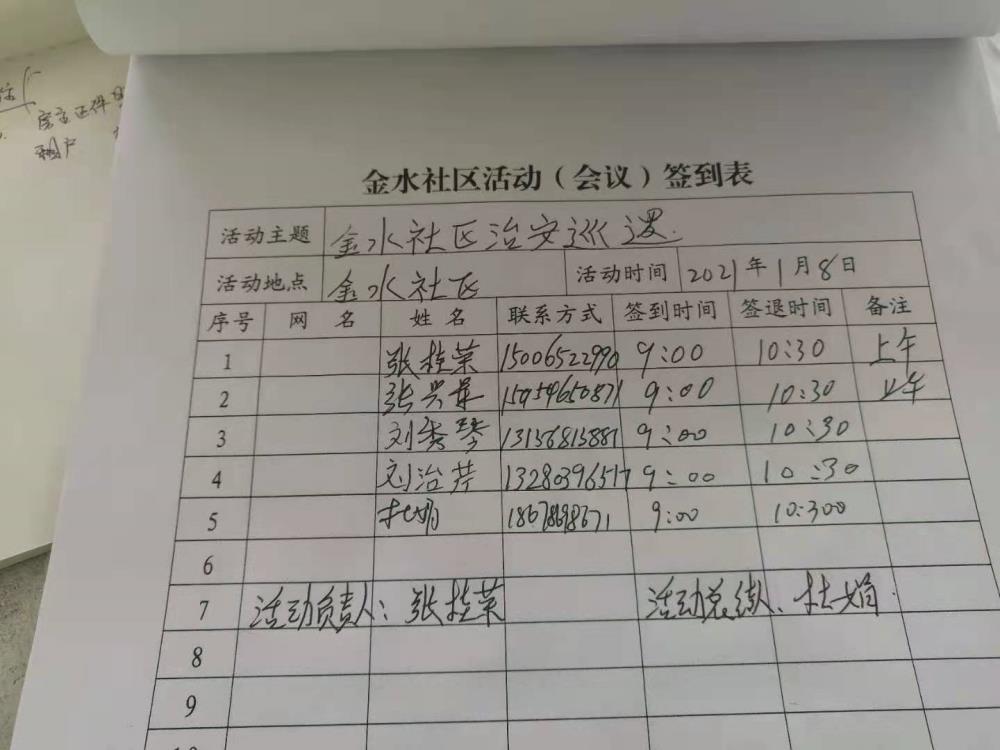 房主证件
租户
金水社区活动（会议）签到表
活动主题 金水社区治安巡逻
活动地点 金水社区 活动时间 2021年1月8日
序号 网名 姓名 联系方式 签到时间 签退时间 备注
1 张桂荣 15006522990 9:00 10:30 上午
2 张兴華 15954650871 9:00 10:30 上午
3 刘秀琴 13156815881 9:00 10:30
4 刘治芹 13280396517 9:00 10:30
5 杜娟 18678698671 9:00 10:300
6
7 活动负责人：张桂荣 活动总结人、杜娟
8
9